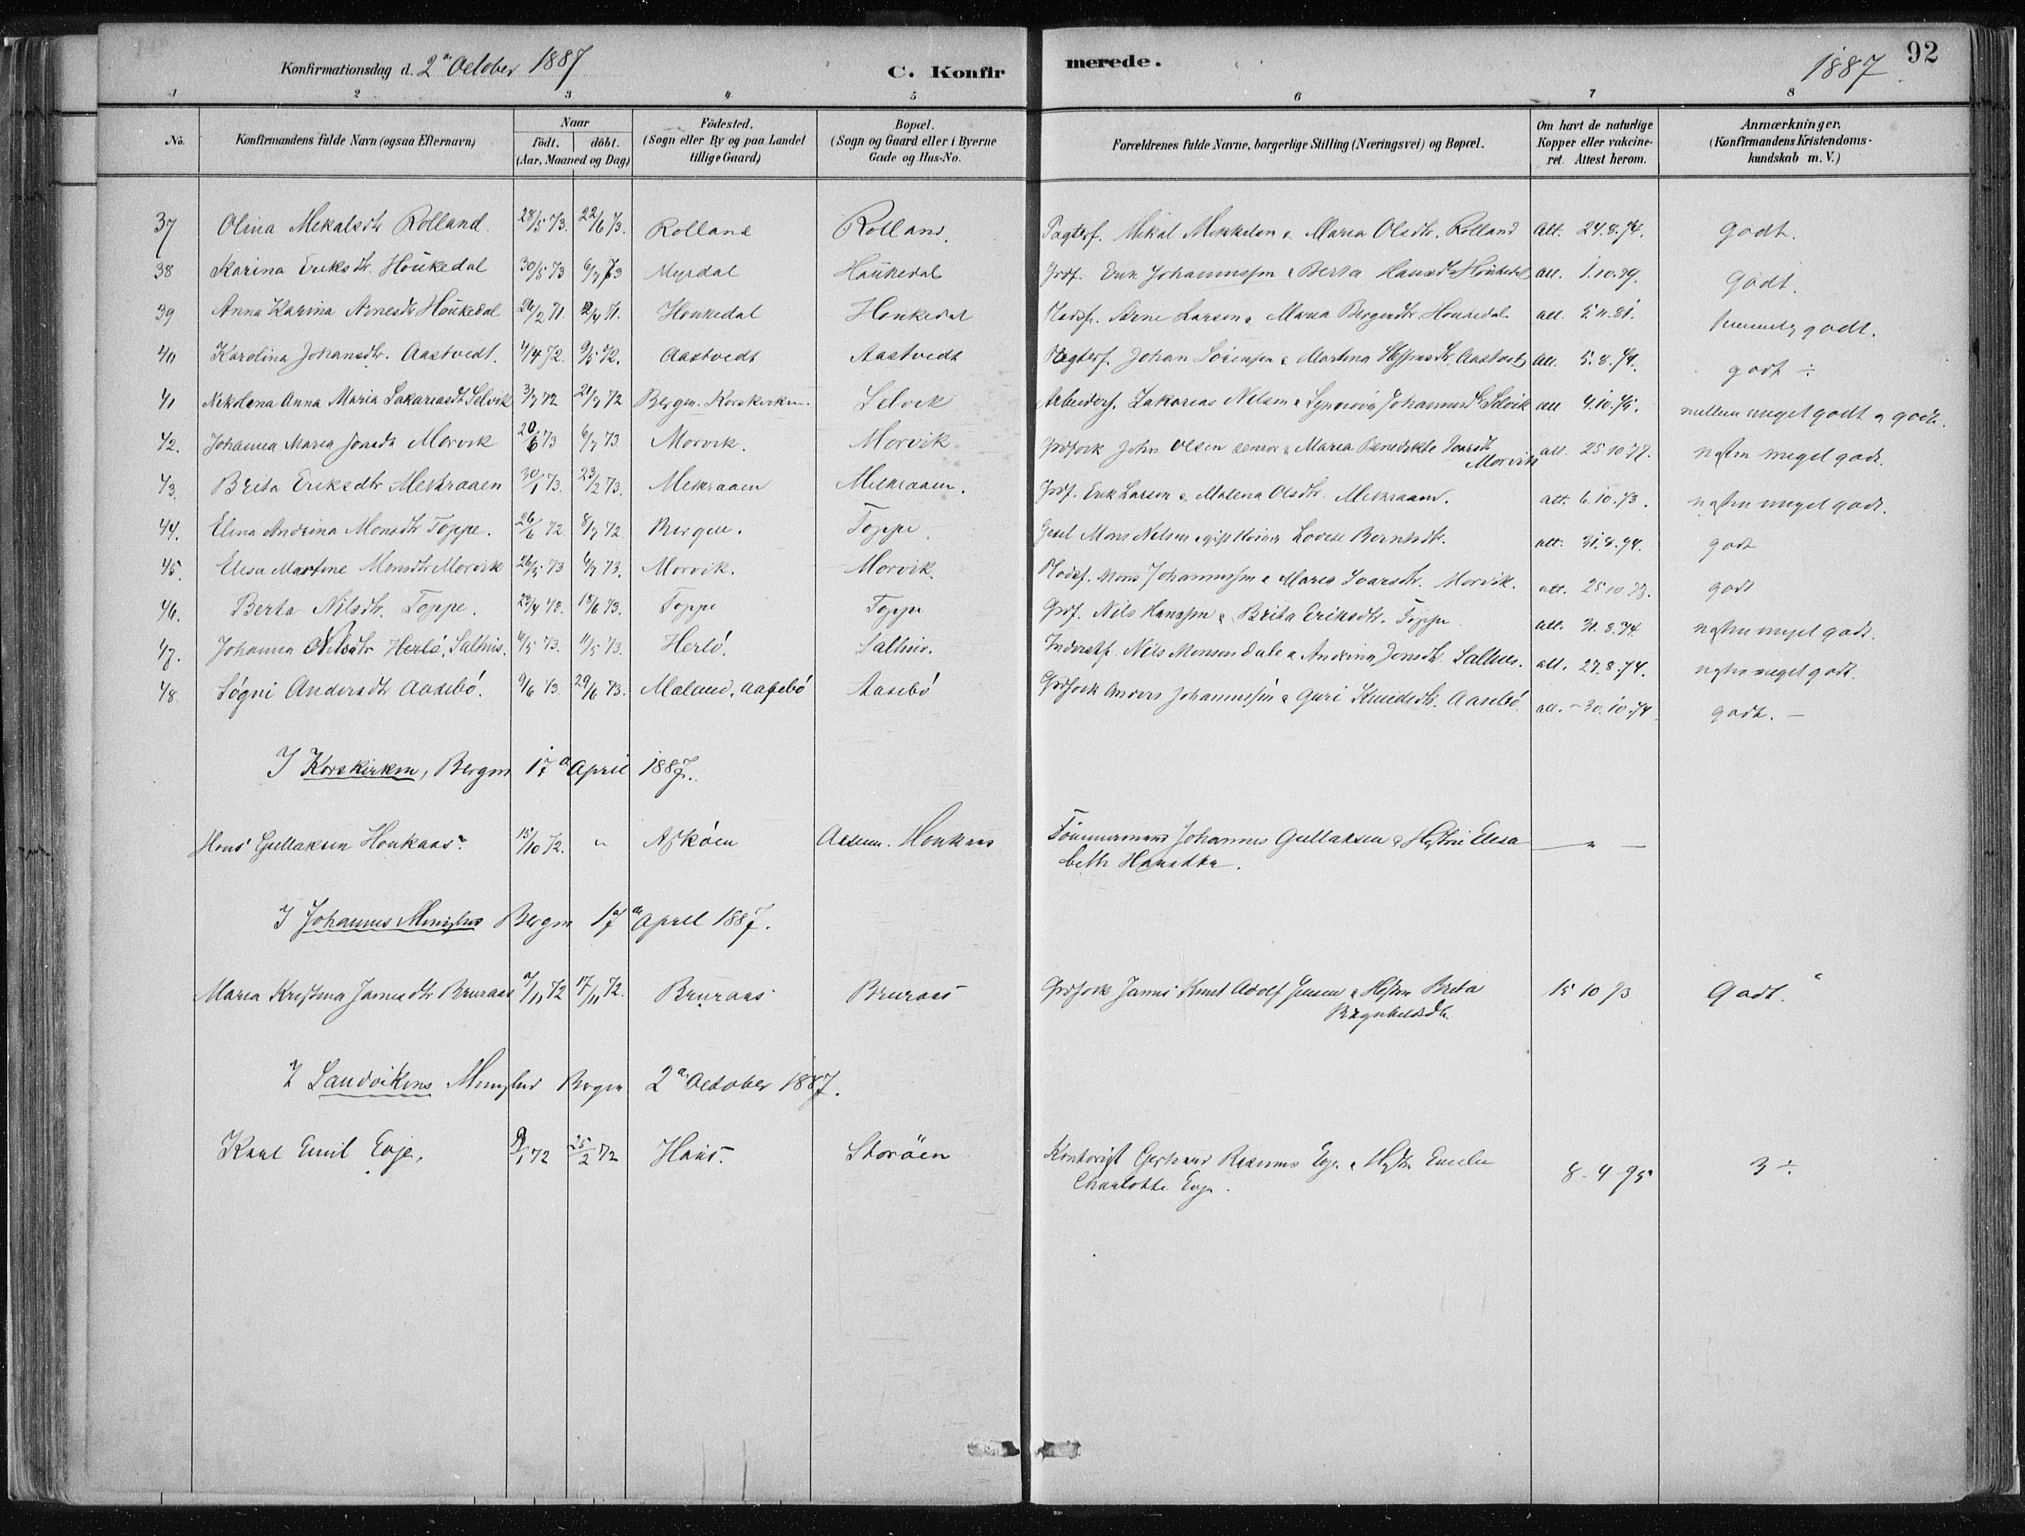 Konfirmationsdag d. 2den October 1887 C. Konfirmerede. 1887 92
1 2 3 4 5 6 7 8
No. Konfirmandens fulde Navn (ogsaa Efternavn) Naar födt. döbt. (Aar, Maaned og Dag) Födested. (Sogn eller By og paa Landet tillige Gaard) Bopæl. (Sogn og Gaard eller i Byerne Gade og Hus-No. Forældrenes fulde Navne, borgerlige Stilling (Næringsvei) og Bopæl. Om havt de naturlige Kopper eller vakcineret. Attest herom. Anmærkninger. (Konfirmandens Kristendomskundskab m. V.)
37 Olina Mekalsdtr Rolland. 28/5 73. 22/6 73. Rolland Rolland. Pagterf. Mikal Mikkelsen & Maria Olsdtr. Rolland Att. 24.8.74. godt.
38 Karina Eriksdtr. Houkedal 30/5 73 6/7 73 Myrdal Houkedal Grdf. Erik Johannessen & Berta Hansdtr Houkedal att. 1.10.79. Godt.
39 Anna Karina Arnesdtr Houkedal 26/2 71. 12/4 71. Houkedal Houkedal Pladsf. Arne Larsen & Maria Bergesdtr. Houkedal att 5.11.81. godt.
40 Karolina Johansdtr. Aastvedt. 4/4 72. 9/5 72. Aastvedt Aastvedt Pagterf. Johan Sörensen & Martina Aastvedt Att. 5.8.74. godt ÷
41 Nikolena Anna Maria Sakariasdtr Selvik 3/7 72 21/7 72 Bergen. Korskirken. Selvik Arbeiderf. Zakarias Nilsen & Synneva Johannesdtr Selvik att 4.10.75. mellem meget godt & godt.
42. Johanna Maria Jonsdtr Morvik 20/6 73 6/7 73 Morvik. Morvik Grdfolk John Olsen senior & Maria Benedikte Ivarsdtr Morvik att. 25.10.77. næsten meget godt.
43. Brita Eriksdtr Melkraaen 30/1 73. 23/2 73. Melkraaen Melkraaen. Grdf. Erik Larsen & Malena Olsdtr. Melkraaen. att. 6.10.73. næsten meget godt.
44. Elina Andrina Monsdtr Toppe. 26/6 72 8/7 72 Bergen. Toppe. Mons Nilsen Lovise Berntsdtr. att. 31.8.74. godt
45. Elesa Martine Monsdtr Morvik 26/5 73 6/7 73. Morvik. Morvik. Pladsf. Mons Johannessen & Maria Ivarsdtr. Morvik. att. 25.10.73. godt
46. Berta Nilsdtr. Toppe. 29/4 73. 15/6 73. Toppe Toppe Grdf. Nils Hanssen & Brita Eriksdtr. Toppe. att. 31.8.74 næsten meget godt.
47. Johanna Nilsdtr Herlö, Salhus. 6/5 73. 11/5 73. Herlö. Salhus. Inderstf. Nils Monsen Dale & Andrina Jonsdtr. Salhus. att. 27.8.74. næsten meget godt.
48. Sögni Andersdtr Aasebö. 9/6 73. 29/6 73. Maland, Aasebö Aasebö Grdfolk Anders Johannessen & Guri Knudsdtr. Aasebö. att. - 30.10.74. godt. -
I Korskirken, Bergen 17de April 1887.
Hans Gullaksen Honkaas 15/10 72. " Askøen Honkaas Tömmermand Johannes Gullaksen & Hustru Elesa
beth Hansdtr. — " —
I Johannes Menighed Bergen 17de April 1887.
Maria Kristina Jamesdtr Bruraas 7/11 72 17/11 72. Bruraas Bruraas Grdfolk James Knut Adolf Jensen & Hustru Brita
Ragnhildsdtr. 15 10 73 Godt.
I Sandvikens Menighed Bergen 2den October 1887.
Karl Emil Evje. 9/1 72 25/2 72 Haus. Storöen Kontorist Gerhard Rasmus Evje & Hustru Emilie
Charlotte Evje. 8-4-75 3 ÷